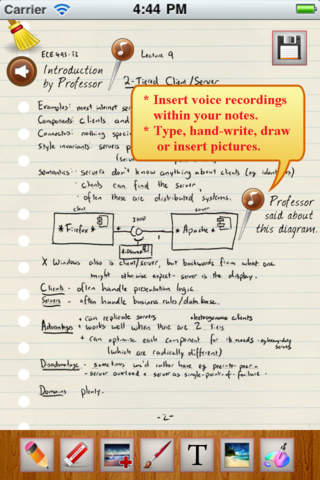 Carrier 4:44 PM
ECE 493-t2 Lecture 9
Introduction
by Professor
2-Tiered Client/Server
* Insert voice recordings
within your notes.
* Type, hand-write, draw
or insert pictures.
Examples: most internet
Components: clients and
Connector: nothing
Style invariants: servers
semantics: servers don't know anything about clients
· clients can find the server,
· often these are distributed systems.
Professor
said about
this diagram.
client server
* Firefox * * Apache *
X Windows also is client/server, but backwards from what one
might otherwise expect - server is the display.
Clients - often handle presentation logic.
Servers - often handle business rules/database.
+ can replicate servers
Advantages + works well when there are 2
+ can optimise each component for its needs
(which are radically different)
Disadvantage - sometimes we'd rather have eg peer-to-peer
- server overload + server as single-point-of-failure.
Domains plenty.
-2-
T